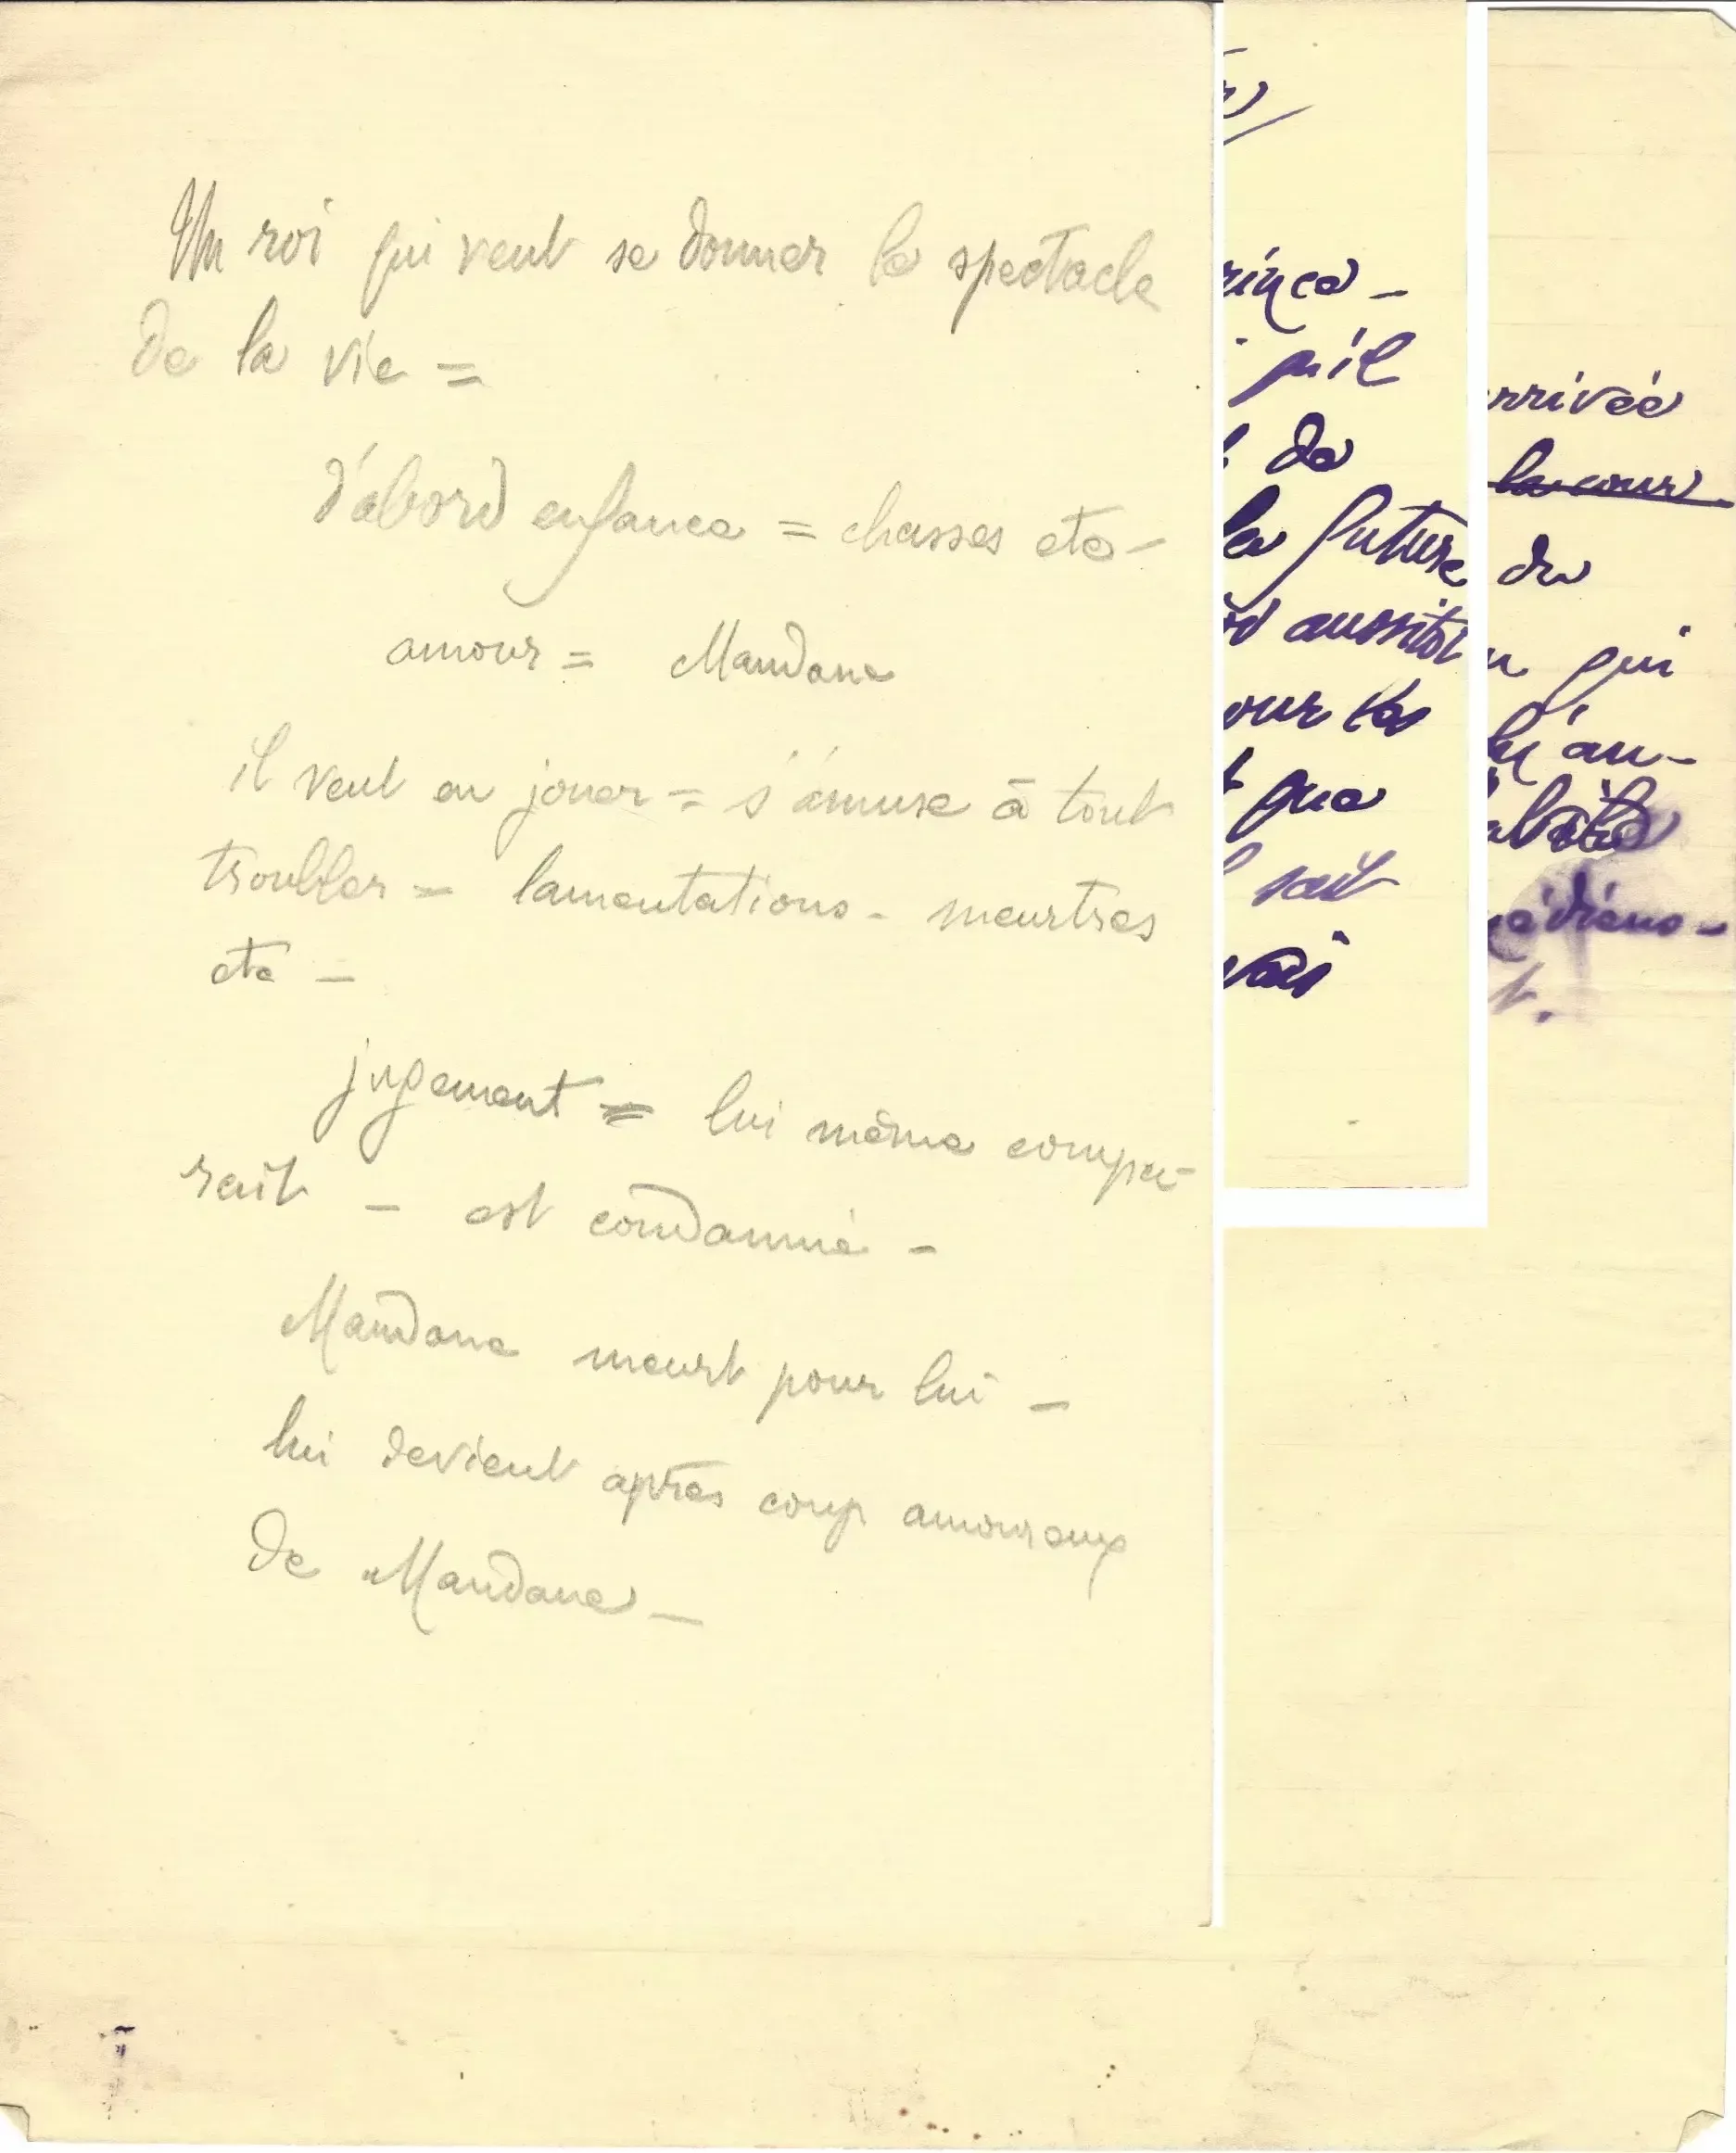 Un roi qui veut se donner le spectacle
de la vie =
d'abord enfance = chasses etc –
amour = Mandane
il veut en jouer = s'amuse à tout
troubler = lamentations - meurtres
etc –
jugement = lui même compa-
rait – est condamné –
Mandane meurt pour lui –
lui devient après coup amoureux
de Mandane –
rince –
qu'il
de
la future
aussitôt
our la
que
sait
vai
rrivée
la cour
du
qui
qu'au-
médiens –
t.